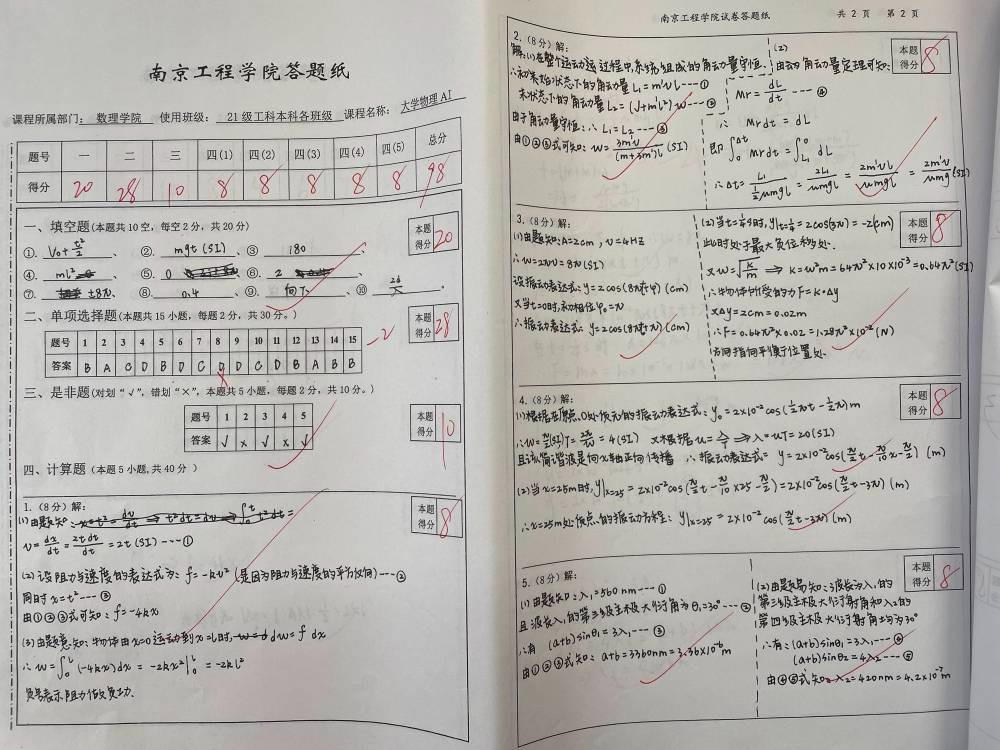 南京工程学院答题纸
课程所属部门: 数理学院 使用班级: 21级工科本科各班级 课程名称: 大学物理AI
题号 一 二 三 四(1) 四(2) 四(3) 四(4) 四(5) 总分
得分 20 28 10 8 8 8 8 8 98
一、填空题(本题共10空，每空2分，共20分)
本题得分 20
①. V₀+t²/2 、 ②. mgt(SI) 、 ③ 180
④. ml² 、 ⑤. 0 、 ⑥. 2
⑦. ±8π 、 ⑧. 0.4 、 ⑨. 向下 、 ⑩
二、单项选择题(本题共15小题，每题2分，共30分。)
本题得分 28
题号 1 2 3 4 5 6 7 8 9 10 11 12 13 14 15
答案 B A C D B D C D D C D B A B B
-2
三、是非题(对划“√”，错划“×”，本题共5小题，每题2分，共10分。)
本题得分 10
题号 1 2 3 4 5
答案 √ × √ × √
四、计算题（本题5小题,共40分 ）
1.（8分）解:
本题得分 8
v=dx/dt=2tdt/dt=2t(SI)---①
(2)设阻力与速度的表达式为: f=-kv²(是因为阻力与速度的平方反向)---②
同时x=t²---③
由①②③式可知: f=-4kx
(3)由题意知:物体由x=0运动到x=l时, dw=f dx
∴w=∫₀ˡ(-4kx)dx=-2kx²|₀ˡ=-2kl²
负号表示阻力做负功.
南京工程学院试卷答题纸 共 2 页 第 2 页
2.（8分）解:
本题得分 8
解:(1)在整个运动过程中,系统组成的角动量守恒.
∴初始状态下的角动量L₁=m'vl---①
末状态下的角动量L₂=(J+m'l²)w---②
由于角动量守恒:∴L₁=L₂---③
由①②③式可知: w=3m'v/(m+3m')l(SI)
(2)
由动角动量定理可知:
Mr=dL/dt ---④
∴ Mrdt=dL
即∫₀^Δt Mrdt=∫_L₁^0 dL
∴Δt=L₁/(½μmgl)=2L₁/μmgl=2m'vl/μmgl=2m'v/μmg(SI)
3.（8分）解:
本题得分 8
(1)由题知:A=2cm，ν=4HZ
∴w=2πν=8π(SI)
设振动表达式: y=2cos(8πt+φ)(cm)
又当t=0时,初相位φ₀=π
∴振动表达式: y=2cos(8πt+π)(cm)
此时处于最大负位移处.
又w=√(k/m)⟹k=w²m=64π²×10×10⁻³=0.64π²(SI)
∴物体所受的力F=k·Δy
又Δy=2cm=0.02m
∴F=0.64π²×0.02=1.28π²×10⁻²(N)
方向指向平衡位置处.
4.（8分）解:
本题得分 8
(1)根据在原点O处质元的振动表达式: y₀=2×10⁻²cos(½πt-½π)m
又根据u=λ/T⟹λ=uT=20(SI)
且该简谐波是向x轴正向传播 ∴振动表达式= y=2×10⁻²cos(π/2 t-π/10 x-π/2)(m)
(2)当x=25m时, y|x=25=2×10⁻²cos(π/2 t-π/10×25-π/2)=2×10⁻²cos(π/2 t-3π)(m)
∴x=25m处质点的振动方程: y|x=25=2×10⁻²cos(π/2 t-3π)(m)
5.（8分）解:
本题得分 8
(1)由题知:λ₁=560nm---①
且波长λ₁的第三级主极大衍射角为θ₁=30°---②
∴有 (a+b)sinθ₁=3λ₁---③
由①②③式知: a+b=3360nm=3.36×10⁻⁶m
(2)由题易知:波长为λ₁的
第三级主极大衍射角和λ₂的
第四级主极大衍射角均为30°
∴有: (a+b)sinθ₁=3λ₁---④
(a+b)sinθ₂=4λ₂---⑤
由④⑤式知: λ₂=420nm=4.2×10⁻⁷m